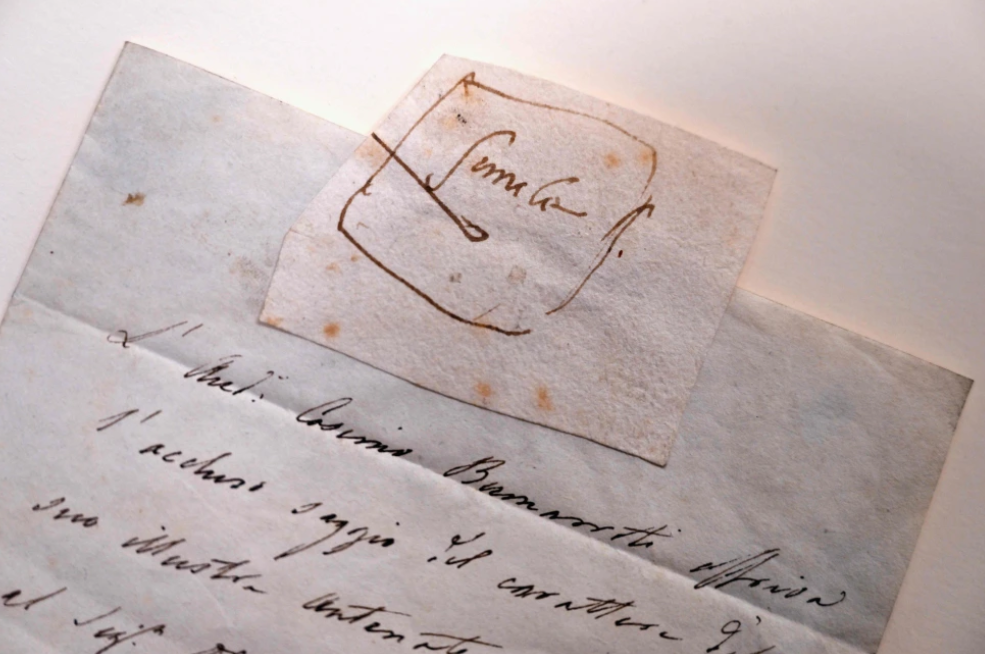 Simile
L'Aud.: Cosimo Buonarroti offriva
l'accluso saggio del carattere d
suo illustre antenato
al Sigr.